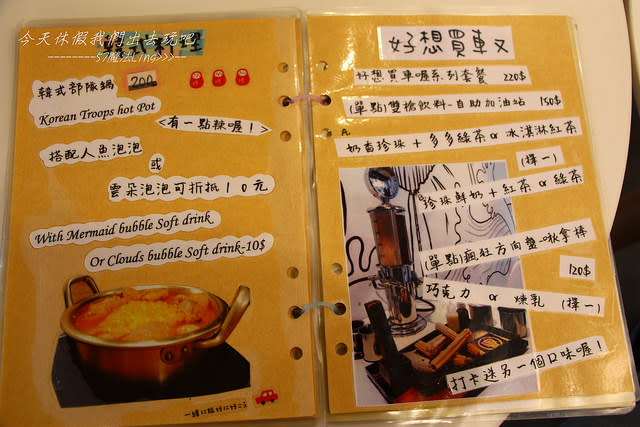 今天休假我們出去玩吧
--------57魔法Ling>>>--
式料理
韓式部隊鍋 200
Korean Troops hot Pot
<有一點辣喔!>
搭配人魚泡泡
或
雲朵泡泡可折抵10元
With Mermaid bubble Soft drink
Or Clouds bubble Soft drink-10$
好想買車ㄡ
好想買車喔系列套餐 220$
(單點)雙槍飲料-自助加油站 150$
A.
奶香珍珠+多多綠茶or冰淇淋紅茶
(擇一)
珍珠鮮奶+紅茶or綠茶
(單點)瘋狂方向盤-啾拿棒
120$
巧克力 or 煉乳 (擇一)
打卡送另一個口味喔!